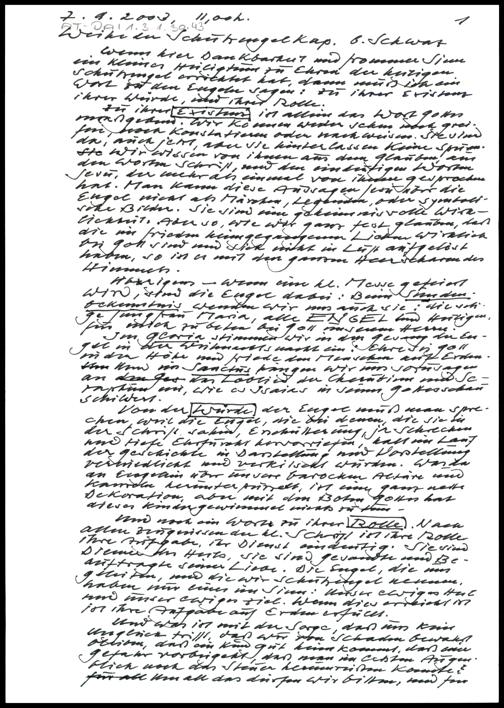 7. 9. 2003, 11,00 h. 1
Weihe der Schutzengelkap. b. Schwaz
Wenn hier Dankbarkeit und frommer Sinn
ein kleines Heiligtum zu Ehren der heiligen
Schutzengel errichtet hat, dann muß ich ein
Wort zu den Engeln sagen: zu ihrer Existenz
ihrer Würde, und ihrer Rolle.
Zu ihrer Existenz ist allein das Wort Gottes
maßgebend. Wir können weder sehen und grei-
fen, noch konstatieren oder nachweisen. Sie sind
da, auch jetzt, aber sie hinterlassen keine Spuren.
Wir wissen von ihnen aus dem Glauben, aus
den Worten der Schrift, und den eindeutigen Worten
Jesu, der mehr als einmal von ihnen gesprochen
hat. Man kann diese Aussagen Jesu über die
Engel nicht als Märchen, Legenden, oder symboli-
sche Bilder. Sie sind eine geheimnisvolle Wirk-
lichkeit. Aber so, wie wir ganz fest glauben, daß
die im Frieden heimgegangenen Lieben wirklich
bei Gott sind und sich nicht in Luft aufgelöst
haben, so ist es mit den ganzen Heerscharen des
Himmels.
Übrigens – wenn eine hl. Messe gefeiert
wird, sind die Engel dabei: Beim Sünden-
bekenntnis wenden wir uns auch an: die seli-
ge Jungfrau Maria, alle ENGEL und Heiligen,
für mich zu beten bei Gott unserem Herrn.
Im Gloria stimmen wir in den Gesang der En-
gel in der Weihnacht ein: Ehre sei Gott
in der Höhe und Friede den Menschen auf Erden.
Und im Sanctus fangen wir sozusagen
an das Loblied der Cherubim und Se-
raphim, wie es Isaias in seiner Gottesschau
schildert.
Von der Würde der Engel muß man spre-
chen, weil die Engel, die bei denen, die sie in
der Schrift sahen, Erschütterung, Erschrecken
und tiefe Ehrfurcht hervorriefen, halt im Lauf
der Geschichte in Darstellung und Vorstellung
verniedlicht und verkitscht wurden. Was da
an Engeln über unsere barocken Altäre und
Kanzeln herunterpurzelt, ist eine ganz nette
Dekoration, aber mit den Boten Gottes hat
dieses Kindergewimmel nichts zu tun.
Und noch ein Wort zu ihrer Rolle. Nach
allen Zeugnissen der hl. Schrift ist ihre Rolle
ihre Aufgabe, ihr Dienst eindeutig. Sie sind
Diener des Heils, sie sind gesandte und Be-
auftragte seiner Liebe. Die Engel, die uns
geleiten, und die wir Schutzengel nennen,
haben nur eines im Sinn: Unser ewiges Heil
und unser ewiges Ziel. Wenn dies erreicht ist
ist ihre Aufgabe auf Erden erfüllt.
Und was ist mit der Sorge, daß uns kein
Unglück trifft, daß wir vor Schaden bewahrt
bleiben, daß ein Kind gut heimkommt, daß eine
Gefahr vorbeigeht, daß man im letzten Augen-
blick noch das Steuer herumreißen konnte?
Um all das dürfen wir bitten, und für